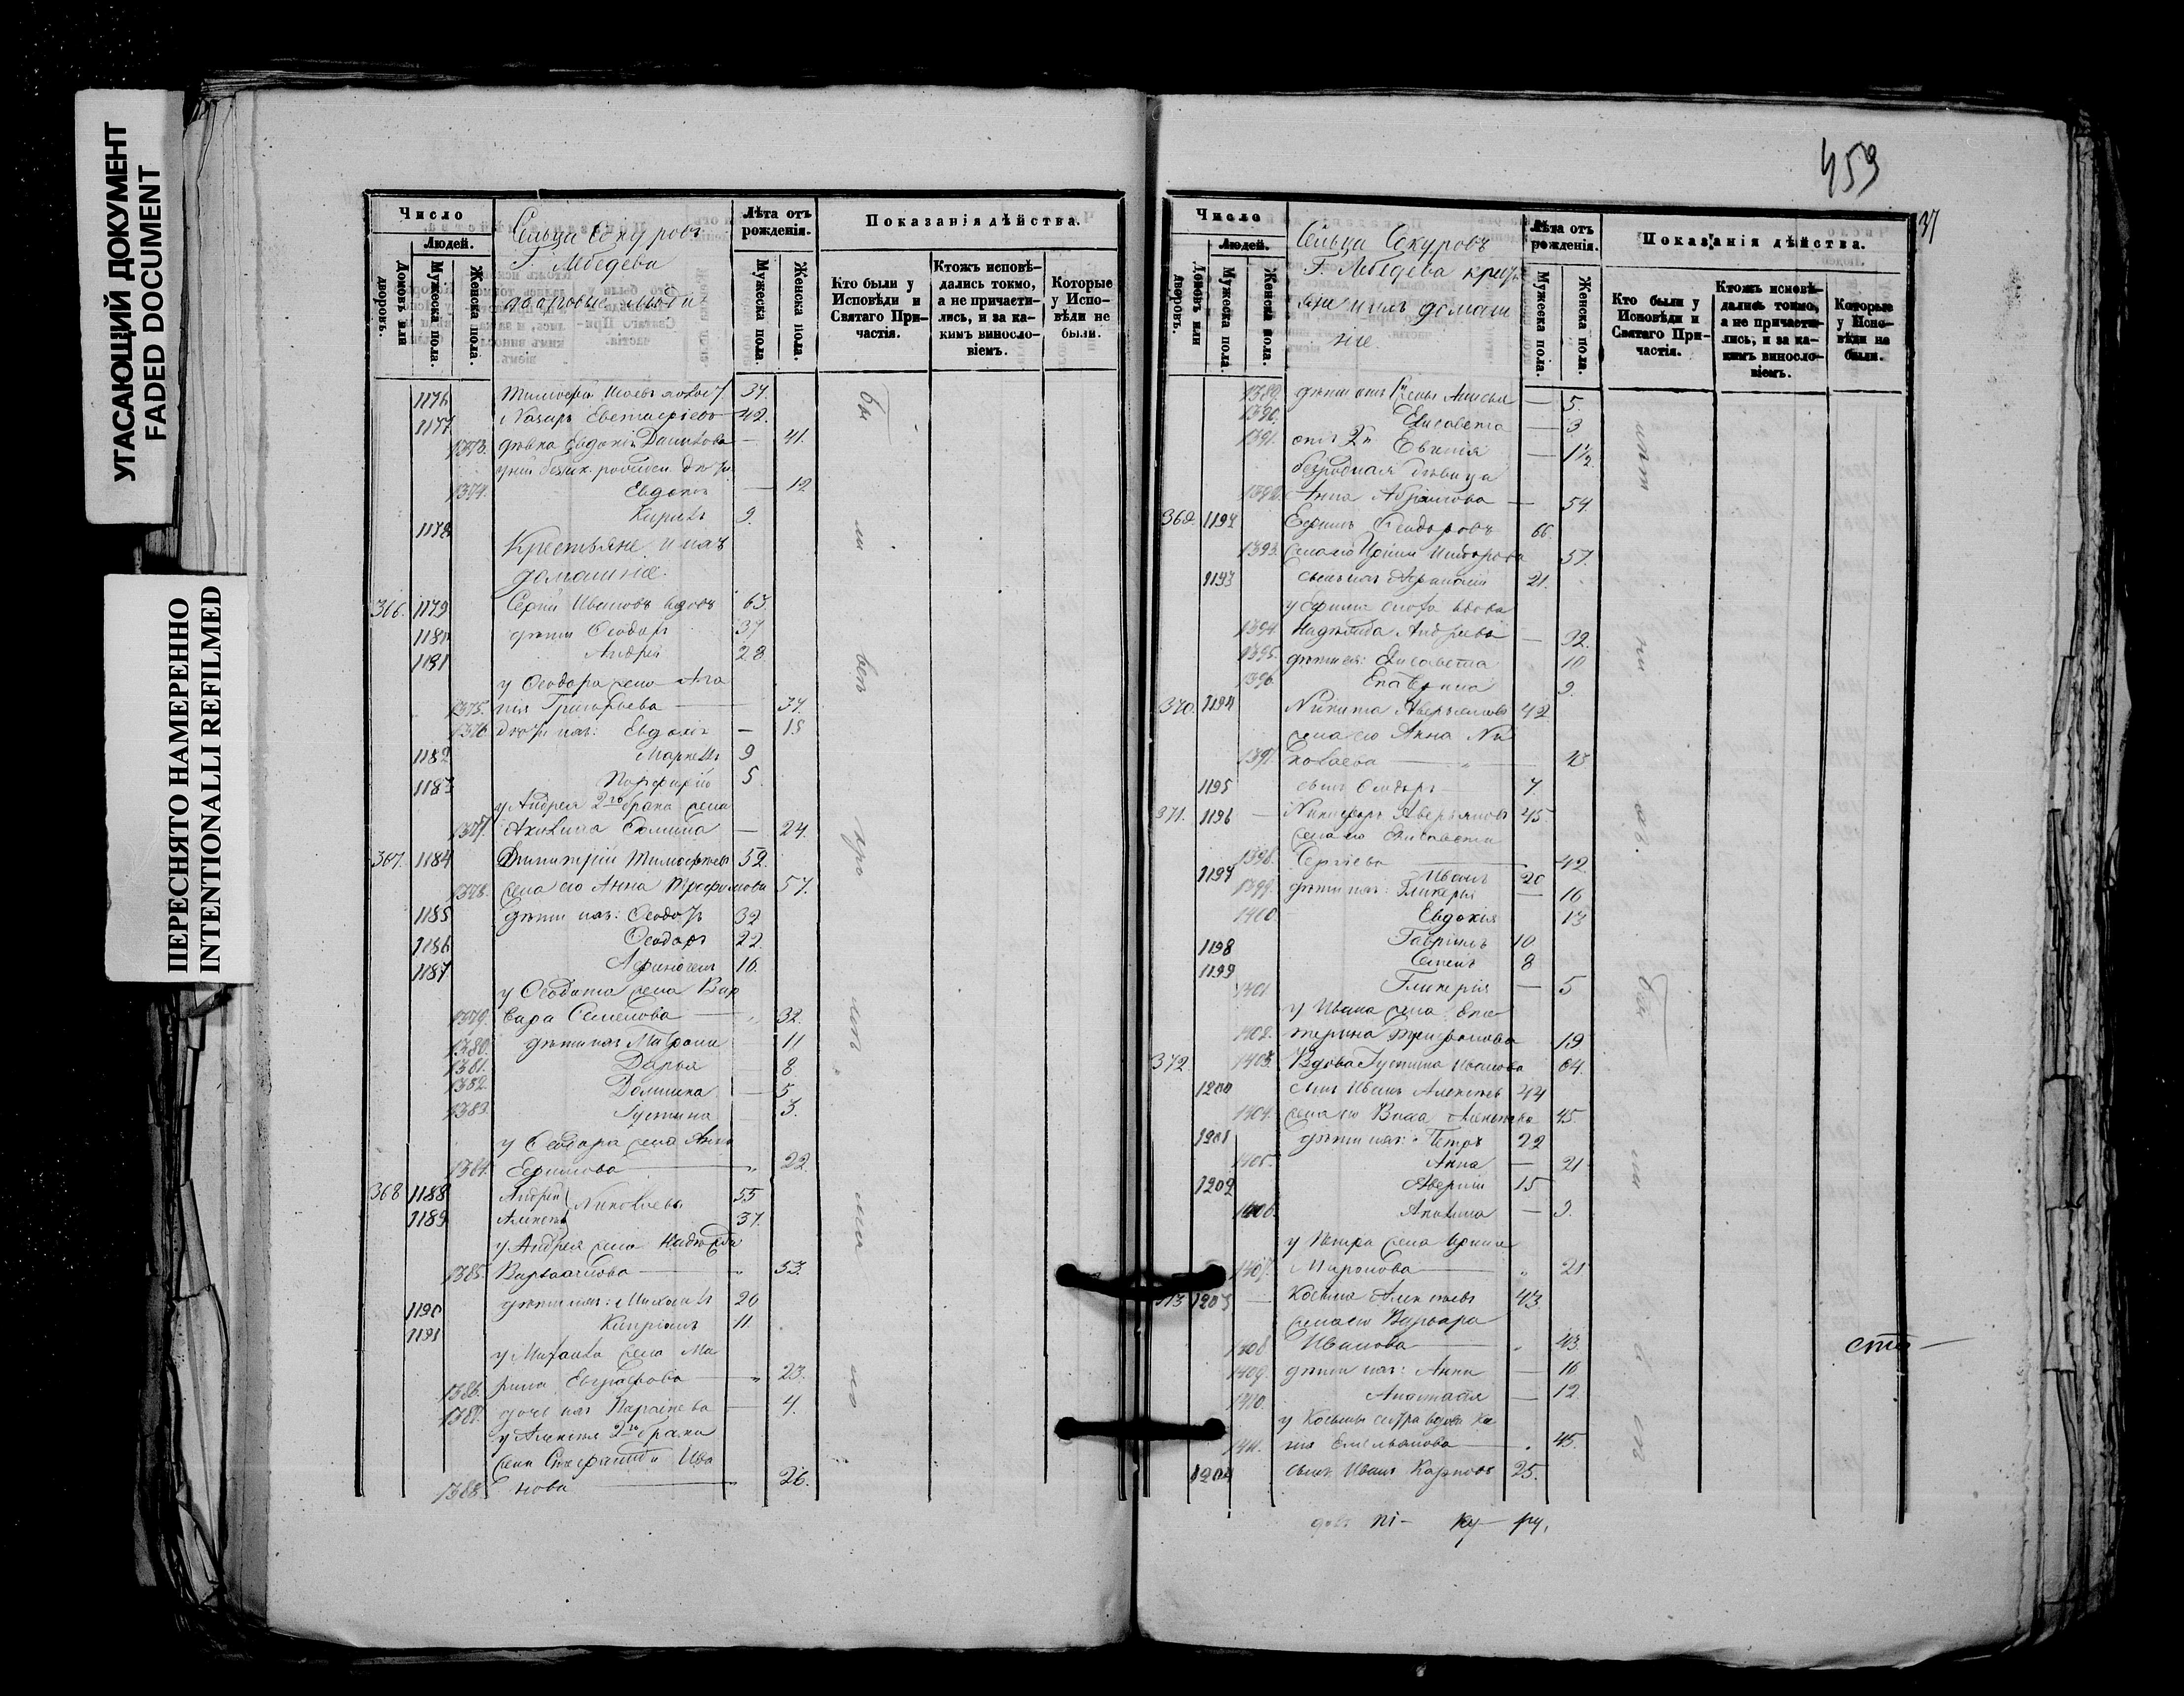 УГАСАЮЩИЙ ДОКУМЕНТ
FADED DOCUMENT
ПЕРЕСНЯТО НАМЕРЕННО
INTENTIONALLI REFILMED
Число
Людей.
Домовъ или дворовъ.
Мужеска пола.
Женска пола.
Сельца Сокуровъ
Г. Лебедева
дворовые люди
Лѣта отъ рожденія.
Мужеска пола.
Женска пола.
Показанія дѣйства.
Кто были у Исповѣди и Святаго Причастія.
Ктожъ исповѣдались токмо, а не причастились, и за какимъ винословіемъ.
Которые у Исповѣди не были.
1176 37.
1177 Назаръ 42.
1373. дѣвка Евдокія 41.
1374. Евдокія — 12
1178 Кирилъ 9.
Крестьяне и ихъ
домашніе.
366. 1179 Сергѣй Ивановъ вдовъ 63.
1180 дѣти Ѳеодоръ 37
1181 Андрей 28
у Ѳеодора жена Ага
1375. пія Григорьева — 37.
1376 дочь ихъ: Евдокія — 15
1182 Маркелъ 9
1183 Порфирій 5.
у Андрея 2го брака жена
1377. Акилина Ѳомина — 24.
367. 1184 Димитрій Тимоѳеевъ 52.
1378. жена его Анна Трофимова 57.
1185 дѣти ихъ: 32
1186 Ѳеодоръ 22.
1187 Аѳиногенъ 16.
жена Вар
1379. вара Семенова — 32.
1380. дѣти ихъ Матрона 11
1381. Дарья 8.
1382. Домника — 5
1383. Іустина — 3.
у Ѳеодора жена Анна
1384. Ефимова — 22.
368 1188 Андрей Николаевы 55
1189 Алексѣй 37.
у Андрея жена Надежда
1385. Варлаамова — 53.
1190 дѣти ихъ: Михаилъ 20
1191 Кипріанъ 11.
у Михаила жена Ма
1386. рина Евграфова — 23.
1387. дочь ихъ Параскева — 4.
у Алексѣя 2го брака
жена Ива
1388. нова — 26.
459
37
Число
Людей.
Домовъ или дворовъ.
Мужеска пола.
Женска пола.
Сельца Сокуровъ
Г. Лебедева крестья
яне и ихъ домаш
ніе.
Лѣта отъ рожденія.
Мужеска пола.
Женска пола.
Показанія дѣйства.
Кто были у Исповѣди и Святаго Причастія.
Ктожъ исповѣдались токмо, а не причастились, и за какимъ винословіемъ.
Которые у Исповѣди не были.
1389. дѣти отъ жены Анисья — 5.
1390. Елисавета — 3
1391. отъ 2й Евгенія — 1½
безродная дѣвица
1392. Анна Абрамова — 54
369. 1192 Ефимъ Ѳеодоровъ 66.
1393. жена его 57.
1193 сынъ ихъ Аѳанасій 21.
у Ефима сноха вдова
1394. Надежда Андреева — 32.
1395. дѣти ея: Елисавета 10
1396. Екатерина 9.
370. 1194 Никита Аверьяновъ 42
жена его Анна Ни
1397. колаева — 43
1195 сынъ Ѳеодоръ 7.
371. 1196 — Никифоръ Аверьяновъ 45.
жена его Елисавета
1398. Сергіева — 42
1197 Иванъ 20
1399. дѣти ихъ: Гликерія — 16
1400. Евдокія 13
1198 Гавріилъ 10.
1199 Семенъ 8
1401 Гликерія — 5
у Ивана жена Ека
1402. терина Трифонова 19
372. 1403. Вдова Іустина Иванова 64.
1200 сынъ Иванъ Алексѣевъ 44
1404. жена его 45.
1201 дѣти ихъ: Петръ 22
1405. Анна — 21
1202 15
1406. Акилина — 9.
у Петра жена Ирина
1407. Миронова — 21
373 1203 — Косьма Алексѣевъ 43
жена его Варвара
1408 Иванова — 43.
1409. дѣти ихъ: Анна — 16
1410. Анастасія — 12.
у Косьмы сестра вдова Ксе
1411. нія Емельянова — 45.
1204 сынъ Иванъ Карповъ 25.